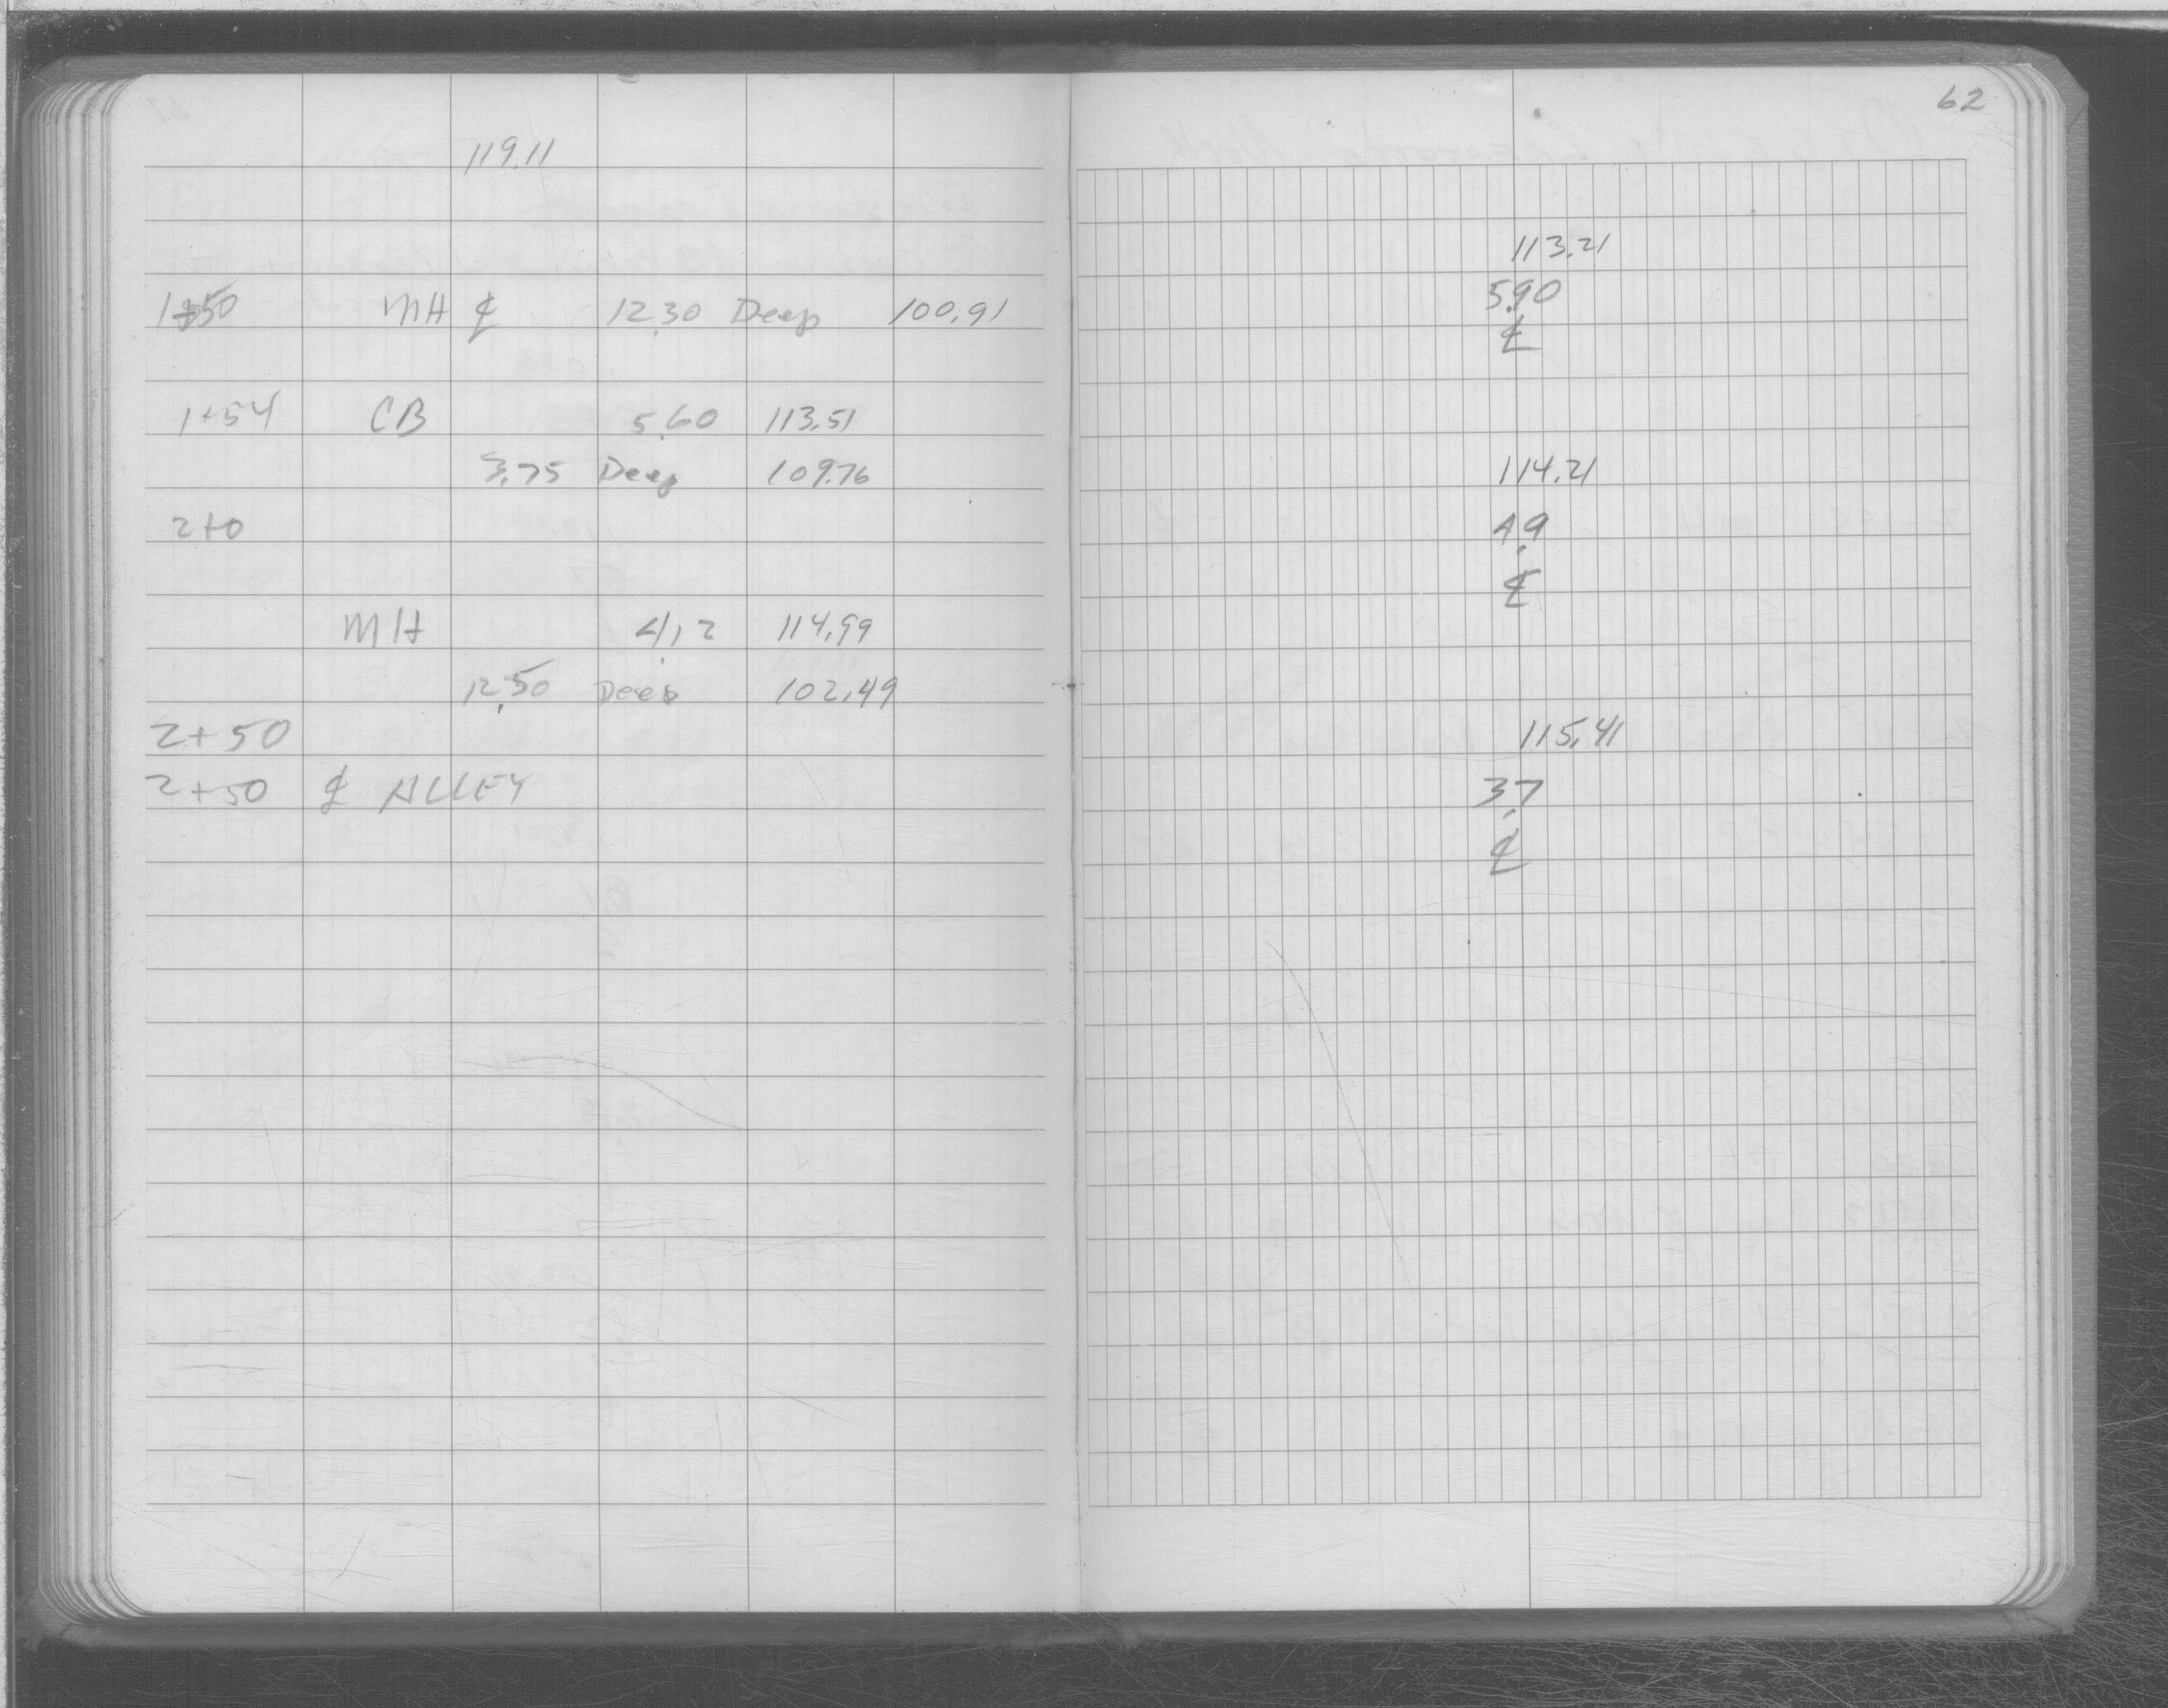 119.11
1+50 MH ℄ 12.30 Deep 100.91
1+54 CB 5.60 113.51
3.75 Deep 109.76
2+0
MH 4.12 114.99
12.50 Deep 102.49
2+50
2+50 ℄ ALLEY
62
113.21
5.90
℄
114.21
4.9
℄
115.41
3.7
℄